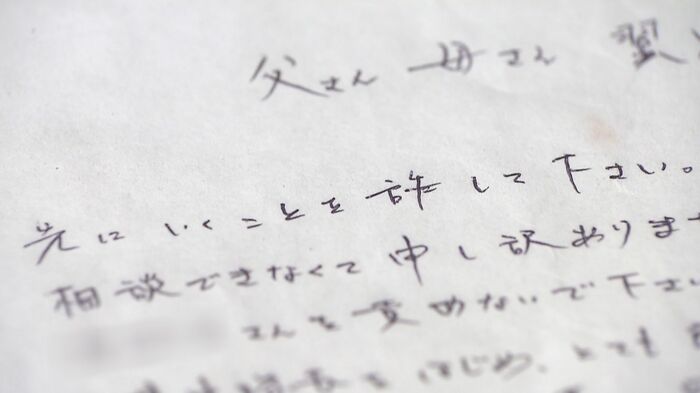 父さん 母さん 翼
先にいくことを許して下さい。
相談できなくて申し訳ありませ
さんを責めないで下さい
はじめ、とても